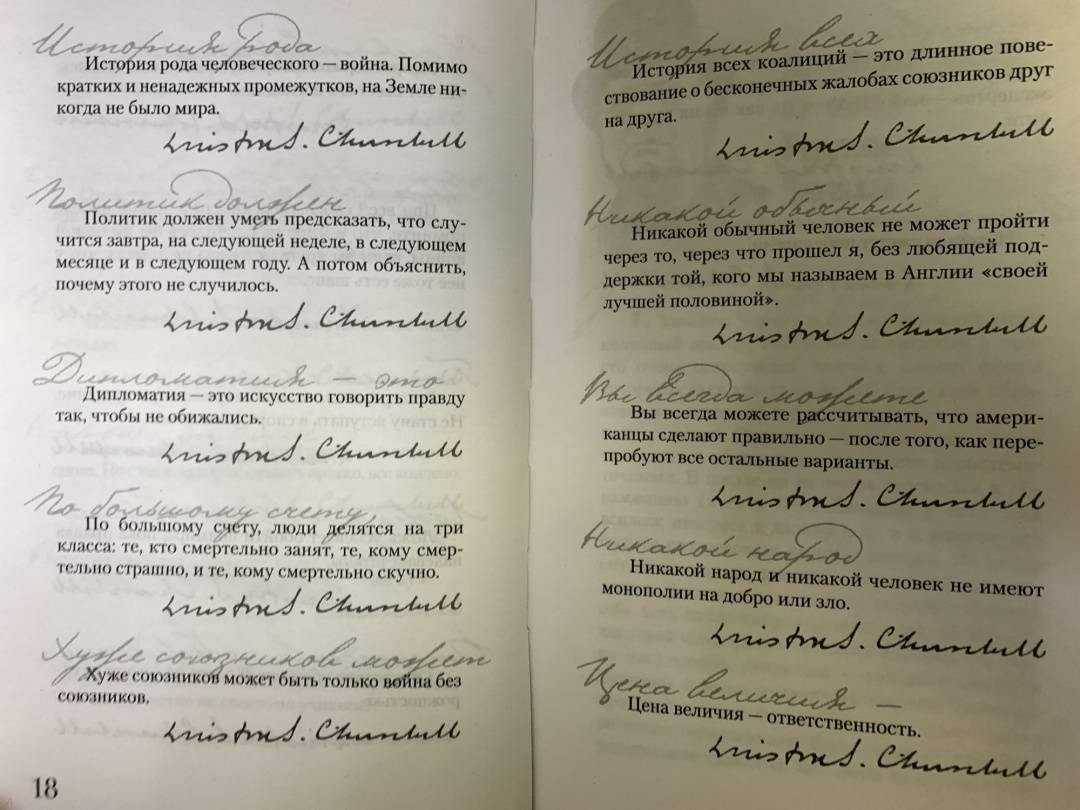 История рода
История рода человеческого — война. Помимо
кратких и ненадежных промежутков, на Земле ни-
когда не было мира.
Winston S. Churchill
Политик должен
Политик должен уметь предсказать, что слу-
чится завтра, на следующей неделе, в следующем
месяце и в следующем году. А потом объяснить,
почему этого не случилось.
Winston S. Churchill
Дипломатия — это
Дипломатия — это искусство говорить правду
так, чтобы не обижались.
Winston S. Churchill
По большому счету,
По большому счету, люди делятся на три
класса: те, кто смертельно занят, те, кому смер-
тельно страшно, и те, кому смертельно скучно.
Winston S. Churchill
Хуже союзников может
Хуже союзников может быть только война без
союзников.
Winston S. Churchill
18
История всех
История всех коалиций — это длинное пове-
ствование о бесконечных жалобах союзников друг
на друга.
Winston S. Churchill
Никакой обычный
Никакой обычный человек не может пройти
через то, через что прошел я, без любящей под-
держки той, кого мы называем в Англии «своей
лучшей половиной».
Winston S. Churchill
Вы всегда можете
Вы всегда можете рассчитывать, что амери-
канцы сделают правильно — после того, как пере-
пробуют все остальные варианты.
Winston S. Churchill
Никакой народ
Никакой народ и никакой человек не имеют
монополии на добро или зло.
Winston S. Churchill
Цена величия —
Цена величия — ответственность.
Winston S. Churchill